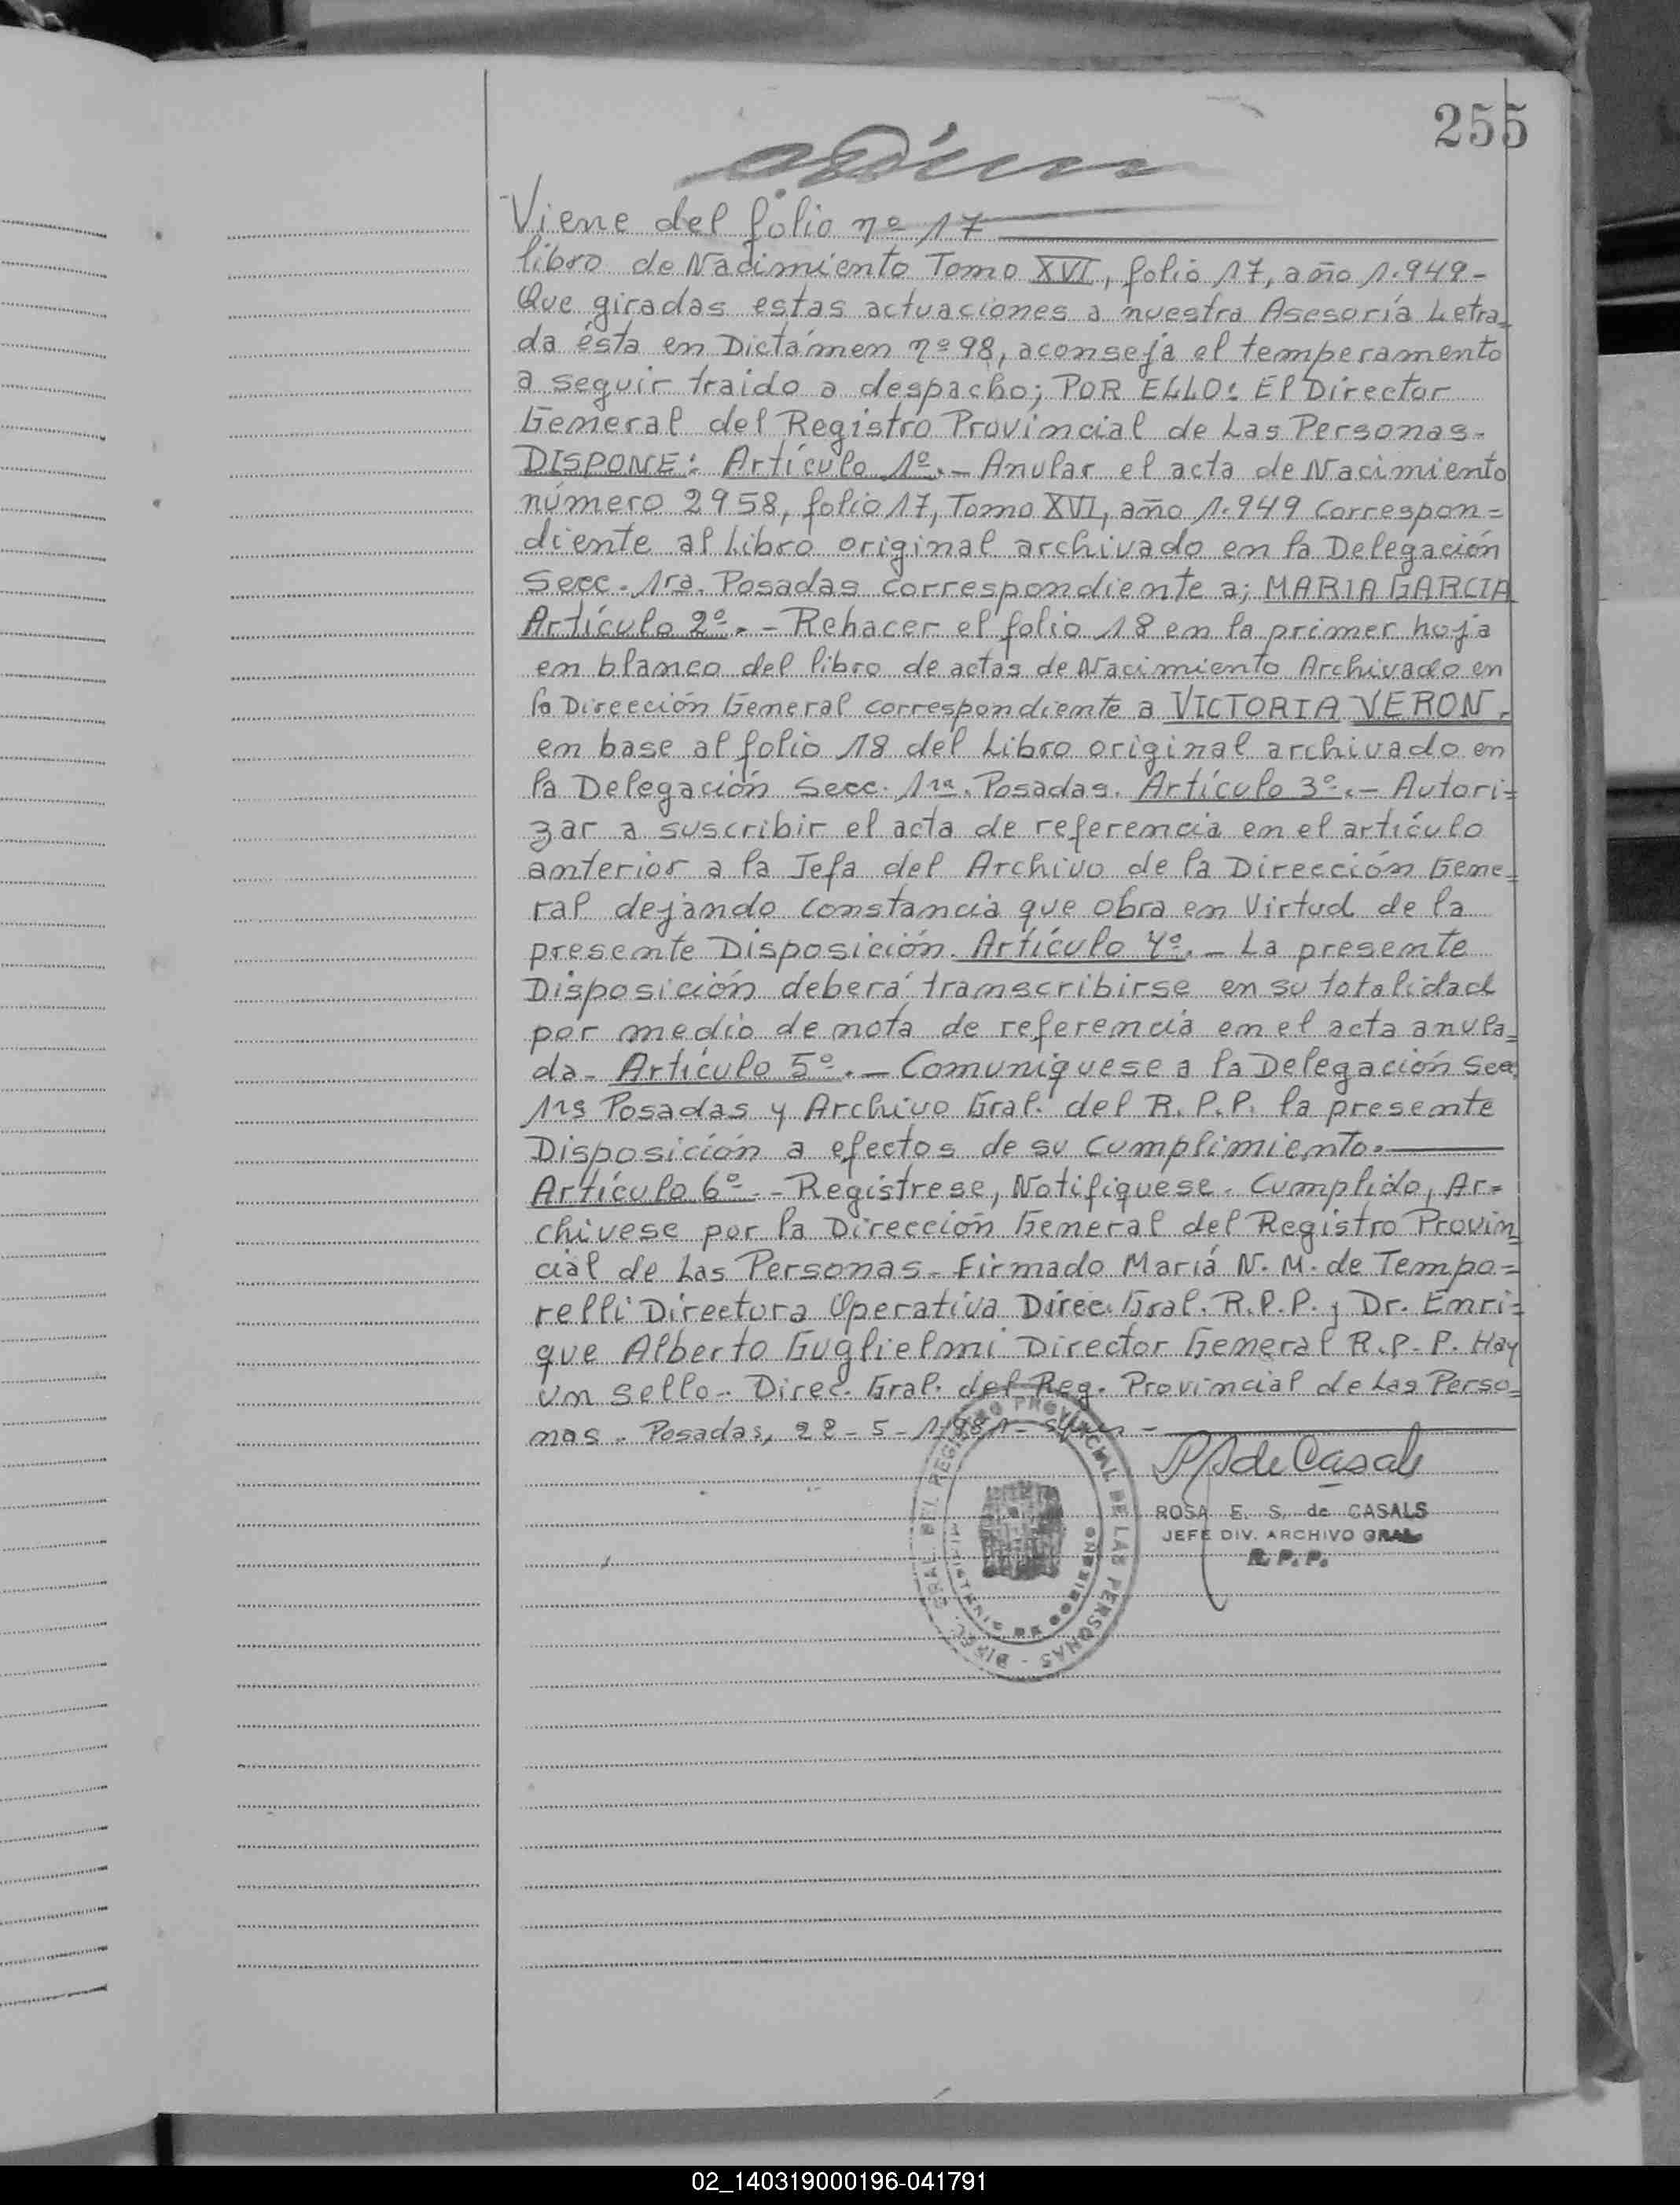 255
Viene del folio nº 17
libro de Nacimiento Tomo XVI, folio 17, año 1.949-
Que giradas estas actuaciones a nuestra Asesoría Letra-
da ésta en Dictámen nº 98, aconseja el temperamento
a seguir traido a despacho; POR ELLO: El Director
General del Registro Provincial de Las Personas-
DISPONE: Artículo 1º.- Anular el acta de Nacimiento
número 2958, folio 17, Tomo XVI, año 1.949 correspon=
diente al Libro original archivado en la Delegación
Secc. 1ra. Posadas correspondiente a; MARIA GARCIA
Artículo 2º.- Rehacer el folio 18 en la primer hoja
en blanco del libro de actas de Nacimiento Archivado en
la Dirección General correspondiente a VICTORIA VERON,
en base al folio 18 del Libro original archivado en
la Delegación Secc. 1ra. Posadas. Artículo 3º.- Autori=
zar a suscribir el acta de referencia en el artículo
anterior a la Jefa del Archivo de la Dirección Gene=
ral dejando constancia que obra en Virtud de la
presente Disposición. Artículo 4º.- La presente
Disposición deberá transcribirse en su totalidad
por medio de nota de referencia en el acta anula=
da- Artículo 5º.- Comuniquese a la Delegación Secc.
1ra Posadas y Archivo Gral. del R.P.P. la presente
Disposición a efectos de su cumplimiento.
Artículo 6º.- Registrese, Notifiquese. Cumplido, Ar=
chivese por la Dirección General del Registro Provin=
cial de Las Personas- Firmado Mariá N. M. de Tempo=
relli Directora Operativa Direc. Gral. R.P.P. y Dr. Enri=
que Alberto Guglielmi Director General R.P.P. Hay
un sello- Direc. Gral. del Reg. Provincial de Las Perso=
nas. Posadas, 22-5-1981-
de Casals
ROSA E. S. de CASALS
JEFE DIV. ARCHIVO GRAL
R. P. P.
DIREC. GRAL DEL REGISTRO PROVINCIAL DE LAS PERSONAS -
MINISTERIO DE GOBIERNO
02_140319000196-041791